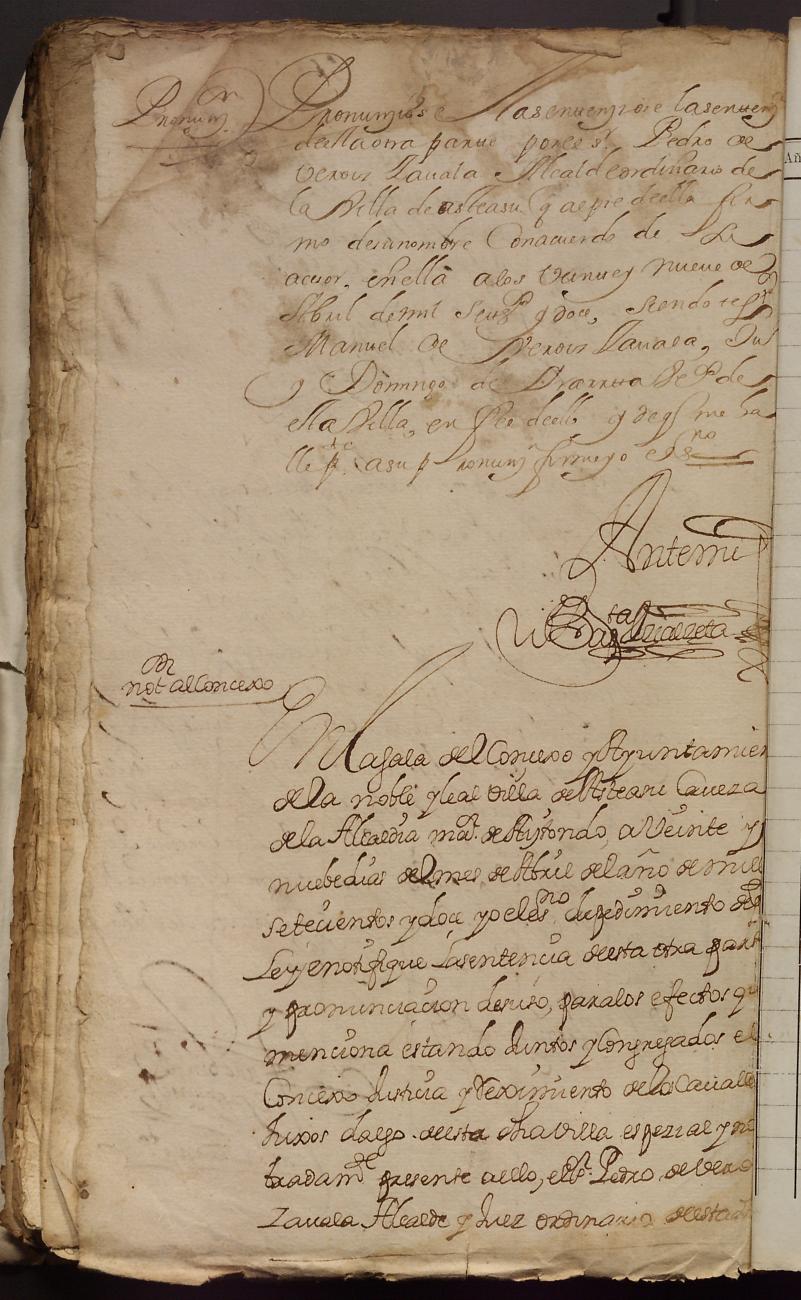 Pronunz.on
Pronunziose la sentenzia de la
de la otra parte por el s.r Pedro de
Verois Zauala Alcalde ordinario de
la Villa de asteasu q al pie de ella fir
mo de su nombre Con acuerdo de su
acesor, en ella a los Veinte y nueve de
Abril de mil setez.s y doce, siendo tes.s
Manuel de Verois Zauala,
y Domingo de Vez.s de
esta Villa, en fee de ello y de q me ha
lle p.te a su pronunz.n firme yo el ss.no
Ante mi
not.on al Concexo
En la sala del Concexo y Ayuntamien
de la noble y leal Villa de Asteasu Caveza
de la Alcaldia ma.r de Aiztondo, a Veinte y
nuebe dias del mes de Abril del año de mill
setecientos y doce yo el es.no de pedimiento del
Ley y notifique la sentencia de esta otra part
y pronunciacion de suso, para los efectos qu
menciona estando Juntos y Congregados el
Concexo Justicia y Reximiento de los Cavalle
hixos dalgo de esta dha Villa espezial y no
bradam.te presente a ello, el s.r Pedro de Vero
Zavala Alcalde y Juez ordinario de esta